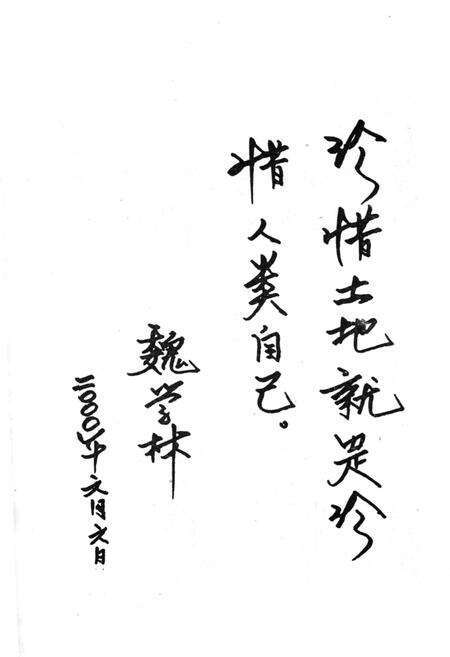 珍惜土地就是珍
惜人类自己。
魏学林
二〇〇〇年六月六日